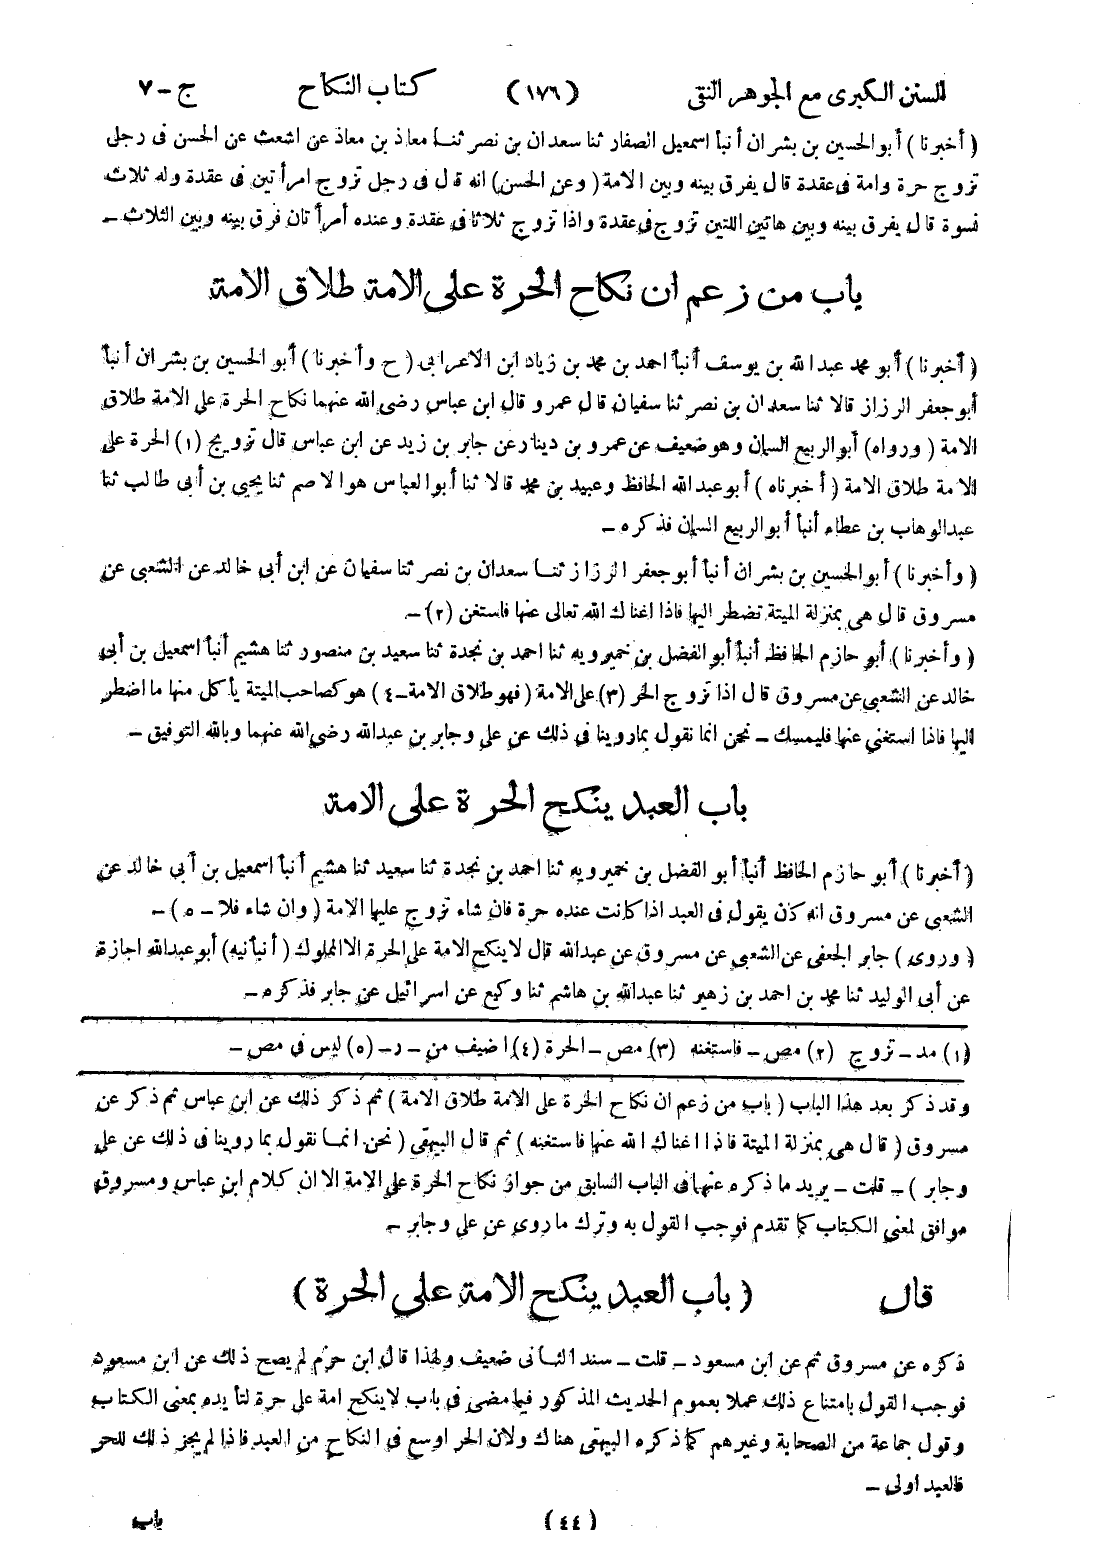 السنن الكبرى مع الجوهر النقى (١٧٦) كتاب النكاح ج-٧
(أخبرنا) أبوالحسين بن بشران أنبأ اسمعيل الصفار ثنا سعدان بن نصر ثنا معاذ بن معاذ عن اشعث عن الحسن فى رجل
تزوج حرة وامة فى عقدة قال يفرق بينه وبين الامة (وعن الحسن) انه قال فى رجل تزوج امرأتين فى عقدة وله ثلاث
نسوة قال يفرق بينه وبين هاتين اللتين تزوج فى عقدة واذا تزوج ثلاثا فى عقدة وعنده أمرأتان فرق بينه وبين الثلاث -
باب من زعم ان نكاح الحرة على الامة طلاق الامة
(أخبرنا) أبو محمد عبدالله بن يوسف أنبأ احمد بن محمد بن زياد ابن الاعرابى (ح وأخبرنا) أبو الحسين بن بشران أنبأ
أبوجعفر الرزاز قالا ثنا سعدان بن نصر ثنا سفيان قال عمرو قال ابن عباس رضى الله عنهما نكاح الحرة على الامة طلاق
الامة (ورواه) أبو الربيع السمان وهو ضعيف عن عمرو بن دينار عن جابر بن زيد عن ابن عباس قال تزويج (١) الحرة على
الامة طلاق الامة (أخبرناه) أبوعبدالله الحافظ وعبيد بن محمد قالا ثنا أبوالعباس هوالاصم ثنا يحيى بن أبى طالب ثنا
عبدالوهاب بن عطاء أنبأ أبوالربيع السمان فذكره -
(وأخبرنا) أبوالحسين بن بشران أنبأ أبوجعفر الرزاز ثنا سعدان بن نصر ثنا سفيان عن ابن أبى خالد عن الشعبى عن
مسروق قال هى بمنزلة الميتة تضطر اليها فاذا اغناك الله تعالى عنها فاستغن (٢) -
(وأخبرنا) أبو حازم الحافظ أنبأ أبو الفضل بن خميرويه ثنا احمد بن نجدة ثنا سعيد بن منصور ثنا هشيم أنبأ اسمعيل بن أبى
خالد عن الشعبى عن مسروق قال اذا تزوج الحر (٣) على الامة (فهو طلاق الامة-٤) هو كصاحب الميتة يأكل منها ما اضطر
اليها فاذا استغنى عنها فليمسك - نحن انما نقول بماروينا فى ذلك عن على وجابر بن عبدالله رضى الله عنهما وبالله التوفيق -
باب العبد ينكح الحرة على الامة
(أخبرنا) أبو حازم الحافظ أنبأ أبو الفضل بن خميرويه ثنا احمد بن نجدة ثنا سعيد ثنا هشيم أنبأ اسمعيل بن أبى خالد عن
الشعبى عن مسروق انه كان يقول فى العبد اذا كانت عنده حرة فان شاء تزوج عليها الامة (وان شاء فلا - ٥) -
(وروى) جابر الجعفى عن الشعبى عن مسروق عن عبدالله قال لاينكح الامة على الحرة الا المملوك (أنبأنيه) أبوعبدالله اجازة
عن أبى الوليد ثنا محمد بن احمد بن زهير ثنا عبدالله بن هاشم ثنا وكيع عن اسرائيل عن جابر فذكره -
(١) مد - تزوج (٢) مص - فاستغنه (٣) مص - الحرة (٤) اضيف من - ر - (٥) ليس فى مص -
وقد ذكر بعد هذا الباب (باب من زعم ان نكاح الحرة على الامة طلاق الامة) ثم ذكر ذلك عن ابن عباس ثم ذكر عن
مسروق (قال هى بمنزلة الميتة فاذا اغناك الله عنها فاستغنه) ثم قال البيهقى (نحن انما نقول بما روينا فى ذلك عن على
وجابر) - قلت - يريد ما ذكره عنهما فى الباب السابق من جواز نكاح الحرة على الامة الا ان كلام ابن عباس ومسروق
موافق لمعنى الكتاب كما تقدم فوجب القول به وترك ما روى عن على وجابر -
قال (باب العبد ينكح الامة على الحرة)
ذكره عن مسروق ثم عن ابن مسعود - قلت - سند الثانى ضعيف ولهذا قال ابن حزم لم يصح ذلك عن ابن مسعود
فوجب القول بامتناع ذلك عملا بعموم الحديث المذكور فيما مضى فى باب لاينكح امة على حرة لتأيده بمعنى الكتاب
وقول جماعة من الصحابة وغيرهم كما ذكره البيهقى هناك ولان الحر اوسع فى النكاح من العبد فاذا لم يجز ذلك للحر
فالعبد أولى -
(٤٤) باب